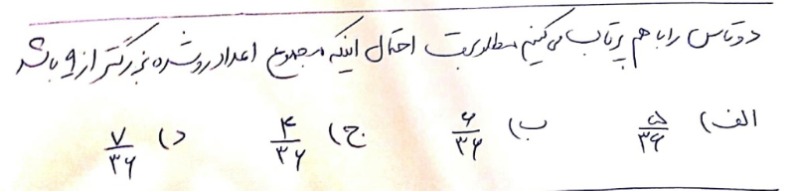 دو تاس را با هم پرتاب می‌کنیم مطلوبست احتمال اینکه مجموع اعداد رو شده بزرگتر از ۹ باشد
الف) ۵/۳۶ ب) ۶/۳۶ ج) ۴/۳۶ د) ۷/۳۶